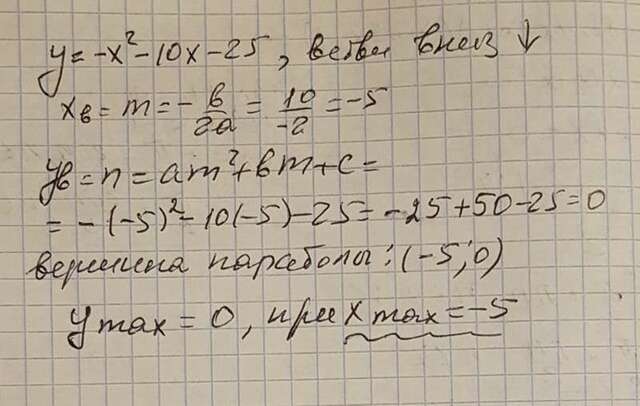 y = -x² - 10x - 25, ветви вниз ↓
xв = m = - в/2a = 10/-2 = -5
yв = n = am² + вm + c =
= - (-5)² - 10(-5) - 25 = -25 + 50 - 25 = 0
вершина параболы: (-5; 0)
y max = 0, при x max = -5